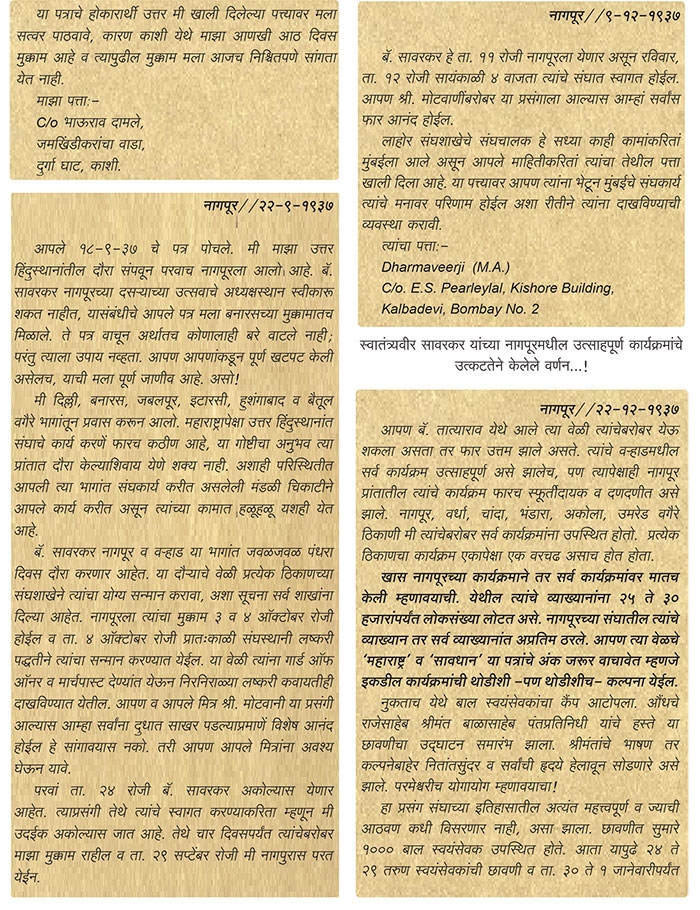 या पत्राचे होकारार्थी उत्तर मी खाली दिलेल्या पत्त्यावर मला
सत्वर पाठवावे, कारण काशी येथे माझा आणखी आठ दिवस
मुक्काम आहे व त्यापुढील मुक्काम मला आजच निश्चितपणे सांगता
येत नाही.
माझा पत्ता:-
C/o भाऊराव दामले,
जमखिंडीकरांचा वाडा,
दुर्गा घाट, काशी.
नागपूर//२२-९-१९३७
आपले १८-९-३७ चे पत्र पोचले. मी माझा उत्तर
हिंदुस्थानांतील दौरा संपवून परवाच नागपूरला आलो आहे. बॅ.
सावरकर नागपूरच्या दसऱ्याच्या उत्सवाचे अध्यक्षस्थान स्वीकारू
शकत नाहीत, यासंबंधीचे आपले पत्र मला बनारसच्या मुक्कामातच
मिळाले. ते पत्र वाचून अर्थातच कोणालाही बरे वाटले नाही;
परंतु त्याला उपाय नव्हता. आपण आपणांकडून पूर्ण खटपट केली
असेलच, याची मला पूर्ण जाणीव आहे. असो!
मी दिल्ली, बनारस, जबलपूर, इटारसी, हुशंगाबाद व बैतूल
वगैरे भागांतून प्रवास करून आलो. महाराष्ट्रापेक्षा उत्तर हिंदुस्थानांत
संघाचे कार्य करणें फारच कठीण आहे, या गोष्टीचा अनुभव त्या
प्रांतात दौरा केल्याशिवाय येणे शक्य नाही. अशाही परिस्थितीत
आपली त्या भागांत संघकार्य करीत असलेली मंडळी चिकाटीने
आपले कार्य करीत असून त्यांच्या कामात हळूहळू यशही येत
आहे.
बॅ. सावरकर नागपूर व वऱ्हाड या भागांत जवळजवळ पंधरा
दिवस दौरा करणार आहेत. या दौऱ्याचे वेळी प्रत्येक ठिकाणच्या
संघशाखेने त्यांचा योग्य सन्मान करावा, अशा सूचना सर्व शाखांना
दिल्या आहेत. नागपूरला त्यांचा मुक्काम ३ व ४ ऑक्टोबर रोजी
होईल व ता. ४ ऑक्टोबर रोजी प्रातःकाळी संघस्थानी लष्करी
पद्धतीने त्यांचा सन्मान करण्यात येईल. या वेळी त्यांना गार्ड ऑफ
ऑनर व मार्चपास्ट देण्यांत येऊन निरनिराळ्या लष्करी कवायतीही
दाखविण्यात येतील. आपण व आपले मित्र श्री. मोटवानी या प्रसंगी
आल्यास आम्हा सर्वांना दुधात साखर पडल्याप्रमाणें विशेष आनंद
होईल हे सांगावयास नको. तरी आपण आपले मित्रांना अवश्य
घेऊन यावे.
परवां ता. २४ रोजी बॅ. सावरकर अकोल्यास येणार
आहेत. त्याप्रसंगी तेथे त्यांचे स्वागत करण्याकरिता म्हणून मी
उदईक अकोल्यास जात आहे. तेथे चार दिवसपर्यंत त्यांचेबरोबर
माझा मुक्काम राहील व ता. २९ सप्टेंबर रोजी मी नागपुरास परत
येईन.
नागपूर//९-१२-१९३७
बॅ. सावरकर हे ता. ११ रोजी नागपूरला येणार असून रविवार,
ता. १२ रोजी सायंकाळी ४ वाजता त्यांचे संघात स्वागत होईल.
आपण श्री. मोटवाणींबरोबर या प्रसंगाला आल्यास आम्हां सर्वांस
फार आनंद होईल.
लाहोर संघशाखेचे संघचालक हे सध्या काही कामांकरितां
मुंबईला आले असून आपले माहितीकरितां त्यांचा तेथील पत्ता
खाली दिला आहे. या पत्त्यावर आपण त्यांना भेटून मुंबईचे संघकार्य
त्यांचे मनावर परिणाम होईल अशा रीतीने त्यांना दाखविण्याची
व्यवस्था करावी.
त्यांचा पत्ता:-
Dharmaveerji (M.A.)
C/o. E.S. Pearleylal, Kishore Building,
Kalbadevi, Bombay No. 2
स्वातंत्र्यवीर सावरकर यांच्या नागपूरमधील उत्साहपूर्ण कार्यक्रमांचे
उत्कटतेने केलेले वर्णन...!
नागपूर//२२-१२-१९३७
आपण बॅ. तात्याराव येथे आले त्या वेळी त्यांचेबरोबर येऊ
शकला असता तर फार उत्तम झाले असते. त्यांचे वऱ्हाडमधील
सर्व कार्यक्रम उत्साहपूर्ण असे झालेच, पण त्यापेक्षाही नागपूर
प्रांतातील त्यांचे कार्यक्रम फारच स्फूर्तीदायक व दणदणीत असे
झाले. नागपूर, वर्धा, चांदा, भंडारा, अकोला, उमरेड वगैरे
ठिकाणी मी त्यांचेबरोबर सर्व कार्यक्रमांना उपस्थित होतो. प्रत्येक
ठिकाणचा कार्यक्रम एकापेक्षा एक वरचढ असाच होत होता.
खास नागपूरच्या कार्यक्रमाने तर सर्व कार्यक्रमांवर मातच
केली म्हणावयाची. येथील त्यांचे व्याख्यानांना २५ ते ३०
हजारांपर्यंत लोकसंख्या लोटत असे. नागपूरच्या संघातील त्यांचे
व्याख्यान तर सर्व व्याख्यानांत अप्रतिम ठरले. आपण त्या वेळचे
‘महाराष्ट्र’ व ‘सावधान’ या पत्रांचे अंक जरूर वाचावेत म्हणजे
इकडील कार्यक्रमांची थोडीशी -पण थोडीशीच- कल्पना येईल.
नुकताच येथे बाल स्वयंसेवकाचा कँप आटोपला. औंधचे
राजेसाहेब श्रीमंत बाळासाहेब पंतप्रतिनिधी यांचे हस्ते या
छावणीचा उद्घाटन समारंभ झाला. श्रीमंतांचे भाषण तर
कल्पनेबाहेर नितांतसुंदर व सर्वांची हृदये हेलावून सोडणारे असे
झाले. परमेश्वरीच योगायोग म्हणावयाचा!
हा प्रसंग संघाच्या इतिहासातील अत्यंत महत्त्वपूर्ण व ज्याची
आठवण कधी विसरणार नाही, असा झाला. छावणीत सुमारे
१००० बाल स्वयंसेवक उपस्थित होते. आता यापुढे २४ ते
२९ तरुण स्वयंसेवकांची छावणी व ता. ३० ते १ जानेवारीपर्यंत